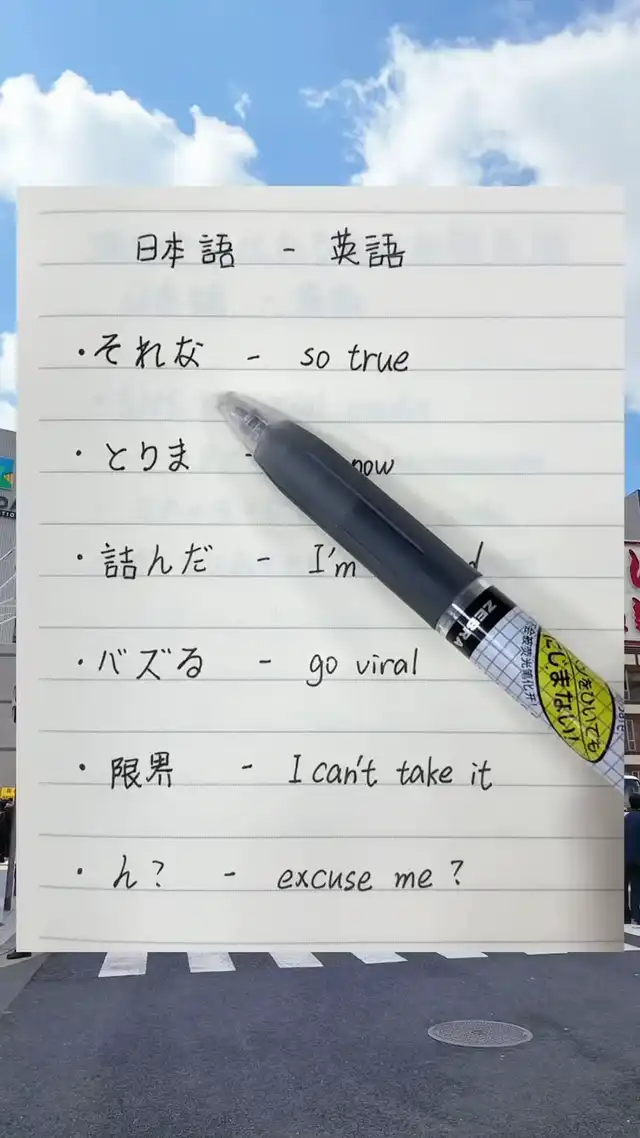 日本語 - 英語
・それな - so true
・とりま - now
・詰んだ - I'm
・バズる - go viral
・限界 - I can't take it
・ん? - excuse me?
ZEBRA
にじまない!